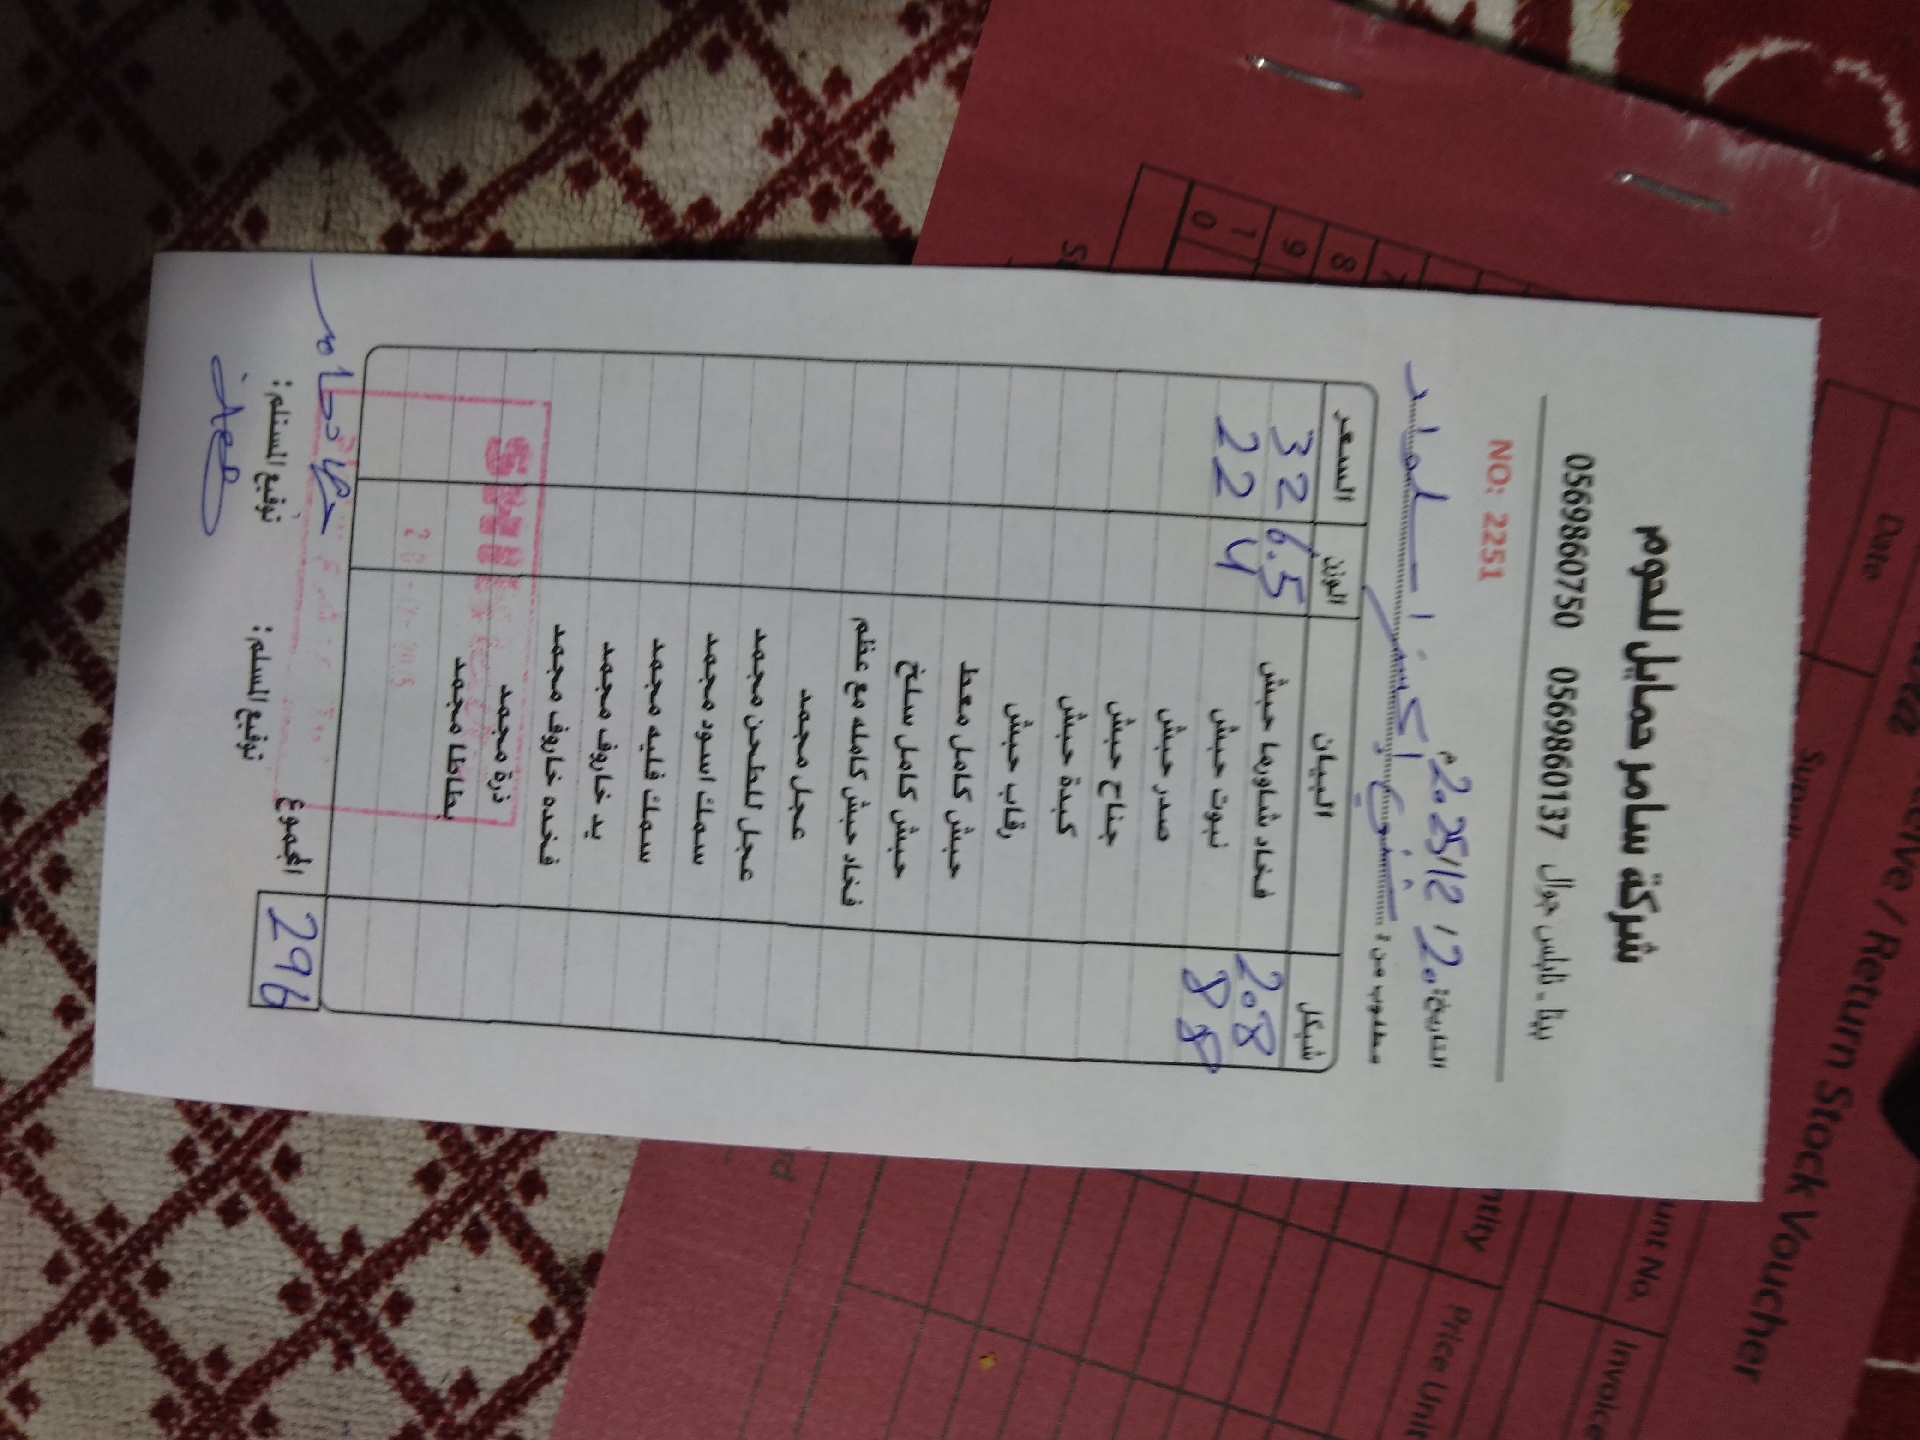 شركة سامر حمايل للحوم
بيتا - نابلس جوال 0569860137 0569860750
NO: 2251
التاريخ: 20 / 12 / 2025م
مطلوب من:
شيكل البيان الوزن السعر
208 فخاد شاورما حبش 6.5 32
88 نبوت حبش 4 22
صدر حبش
جناح حبش
كبدة حبش
رقاب حبش
حبش كامل معط
حبش كامل سلخ
فخاد حبش كامله مع عظم
عجل مجمد
عجل للطحن مجمد
سمك اسود مجمد
سمك فليه مجمد
يد خاروف مجمد
فخده خاروف مجمد
ذرة مجمد
بطاطا مجمد
296 المجموع
توقيع المسلم: توقيع المستلم:
Receive / Return Stock Voucher
Date
Invoice
Price Unit